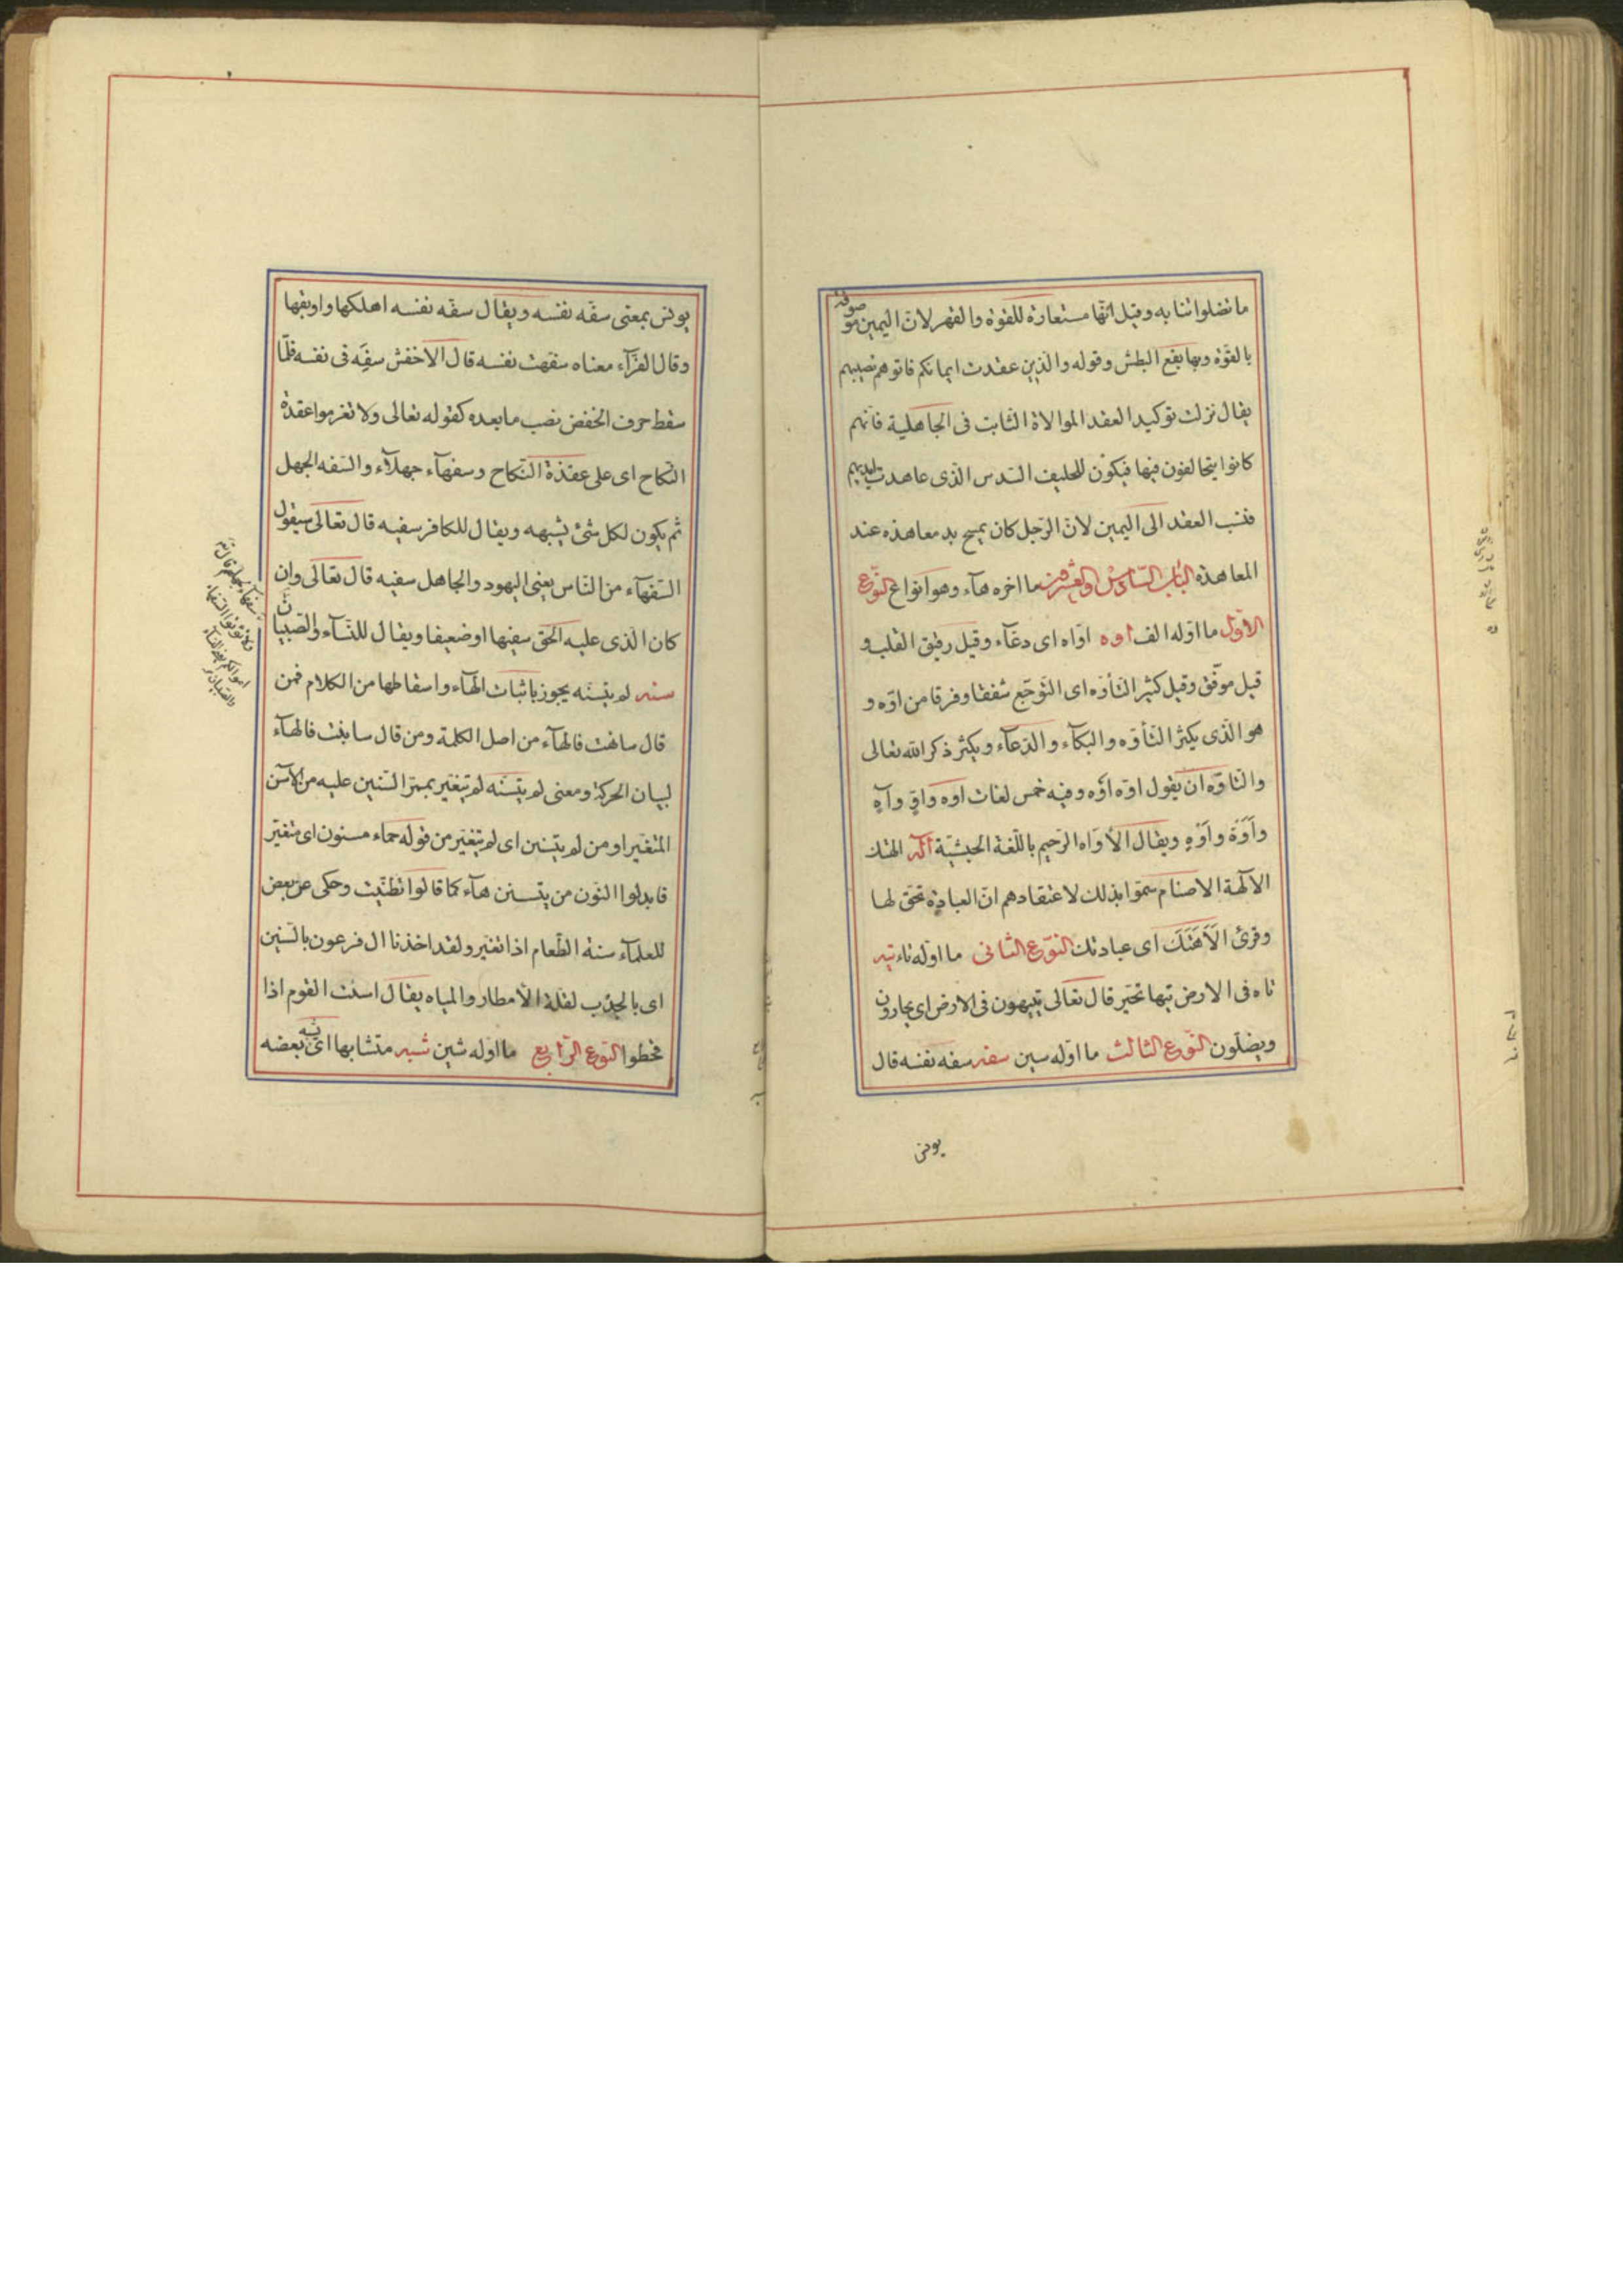 ما تضلوا ثنا به وقيل انّها مستعارة للقوة والقهر لانّ اليمين موصوفة
بالقوّة وبها يقع البطش وقوله والّذين عقدت ايمانكم فاتوهم نصيبهم
يقال نزلت توكيد العقد الموالاة الثابت فى الجاهلية فانّهم
كانوا يتحالفون فيها فيكون للحليف السّدس الّذى عاهدت ايديهم
فنسب العقد الى اليمين لانّ الرّجل كان يمسح يد معاهده عند
المعاهدة الباب السّادس والعشرون ما اخره هآء وهو انواع النّوع
الاوّل ما اوّله الف اوه اوّاه اى دعّآء وقيل رقيق القلب و
قيل موفّق وقيل كثير التأوّه اى التّوجّع شفقا وفرقا من اوّه و
هو الّذى يكثر التأوّه والبكآء والدّعآء ويكثر ذكر الله تعالى
والتاوّه ان يقول اوّه اوّه وفيه خمس لغات اوه واوٍ وآهٍ
وأَوّة وأَوّهٍ ويقال الأوّاه الرّحيم باللّغة الحبشيّة اله الهتك
الآلهة الاصنام سمّوا بذلك لاعتقادهم انّ العبادة تحقّ لها
وقرئ الآهتك اى عبادتك النّوع الثانى ما اوّله تاء تيه
تاه فى الارض تيها تحيّر قال تعالى يتيهون فى الارض اى يحارون
ويضلّون النّوع الثالث ما اوّله سين سفه سفه نفسه قال
يونس
يونس بمعنى سفّه نفسه ويقال سفّه نفسه اهلكها واوبقها
وقال الفرّآء معناه سفهت نفسه قال الاخفش سفِّه فى نفسه فلمّا
سقط حرف الخفض نصب ما بعده كقوله تعالى ولا تعزموا عقدة
النّكاح اى على عقدة النّكاح وسفهآء جهلآء والسّفه الجهل
ثمّ يكون لكل شئ يشبهه ويقال للكافر سفيه قال تعالى سيقول
السّفهآء من النّاس يعنى اليهود والجاهل سفيه قال تعالى وان
كان الّذى عليه الحقّ سفيها او ضعيفا ويقال للنّسآء والصّبيان
سفهآء لجهلهم قال تع
ولا تؤتوا السّفهآء
اموالكم يعنى النّسآء
والصّبيان
سنه لم يتسنّه يجوز باثبات الهآء واسقاطها من الكلام فمن
قال سانهت فالهآء من اصل الكلمة ومن قال سانيت فالهآء
لبيان الحركة ومعنى لم يتسنّه لم يتغيّر بممرّ السّنين عليه من الآسن
المتغيّر او من لم يتسنن اى لم يتغيّر من قوله حماء مسنون اى متغيّر
فابدلوا النّون من يتسنن هآء كما قالوا تظنّيت وحكى عن بعض
للعلمآء سنه الطّعام اذا تغيّر ولقد اخذنا ال فرعون بالسّنين
اى بالجدب لقلة الأمطار والمياه يقال اسنت القوم اذا
قحطوا النّوع الرّابع ما اوّله شين شبه متشابها اى يشبه بعضه